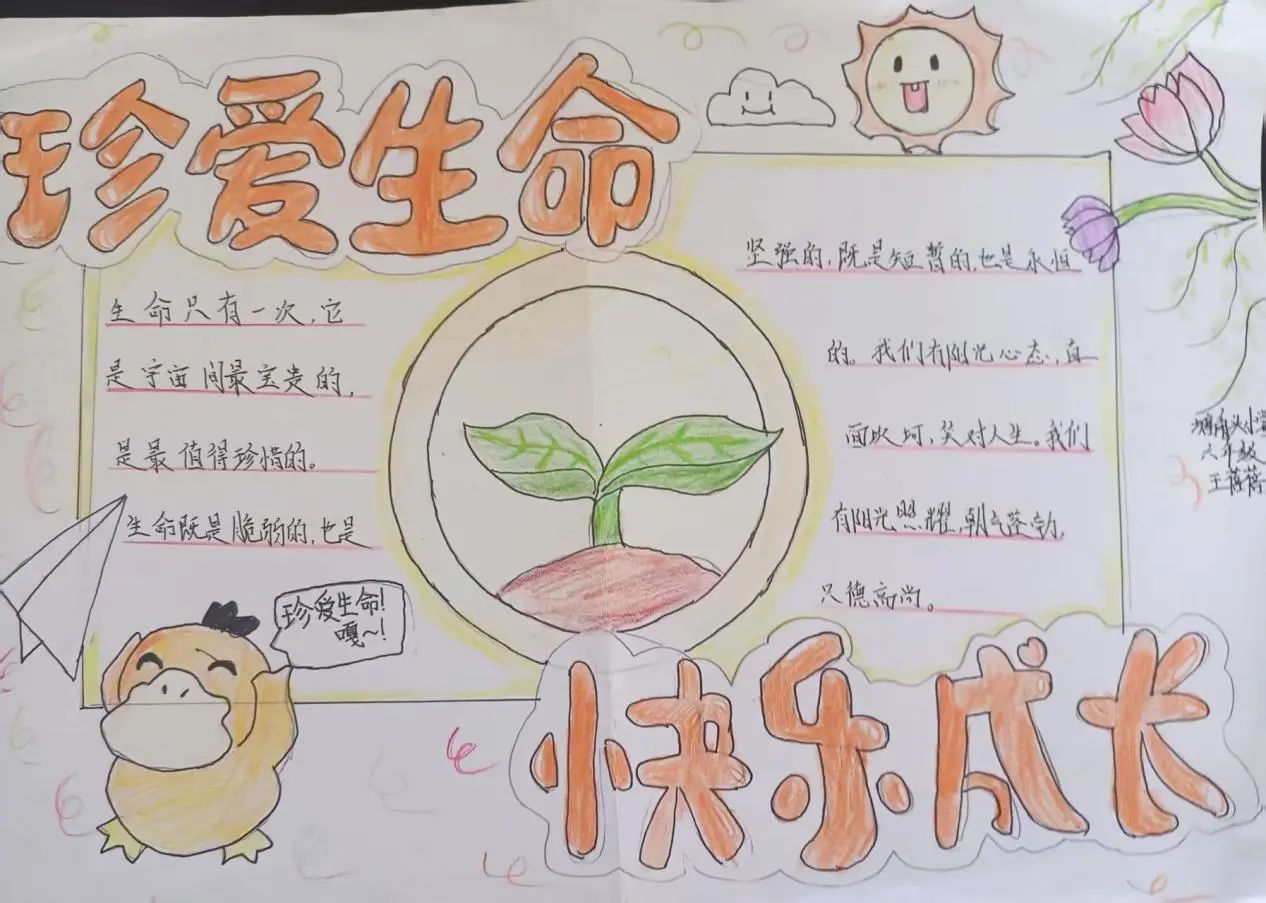 珍爱生命
生命只有一次,它
是宇宙间最宝贵的,
是最值得珍惜的。
生命既是脆弱的,也是
坚强的,既是短暂的,也是永恒
的。我们有阳光心态,直
面坎坷,笑对人生。我们
有阳光照耀,朝气蓬勃,
德高尚。
珍爱生命!
嘎~!
快乐成长
六年级